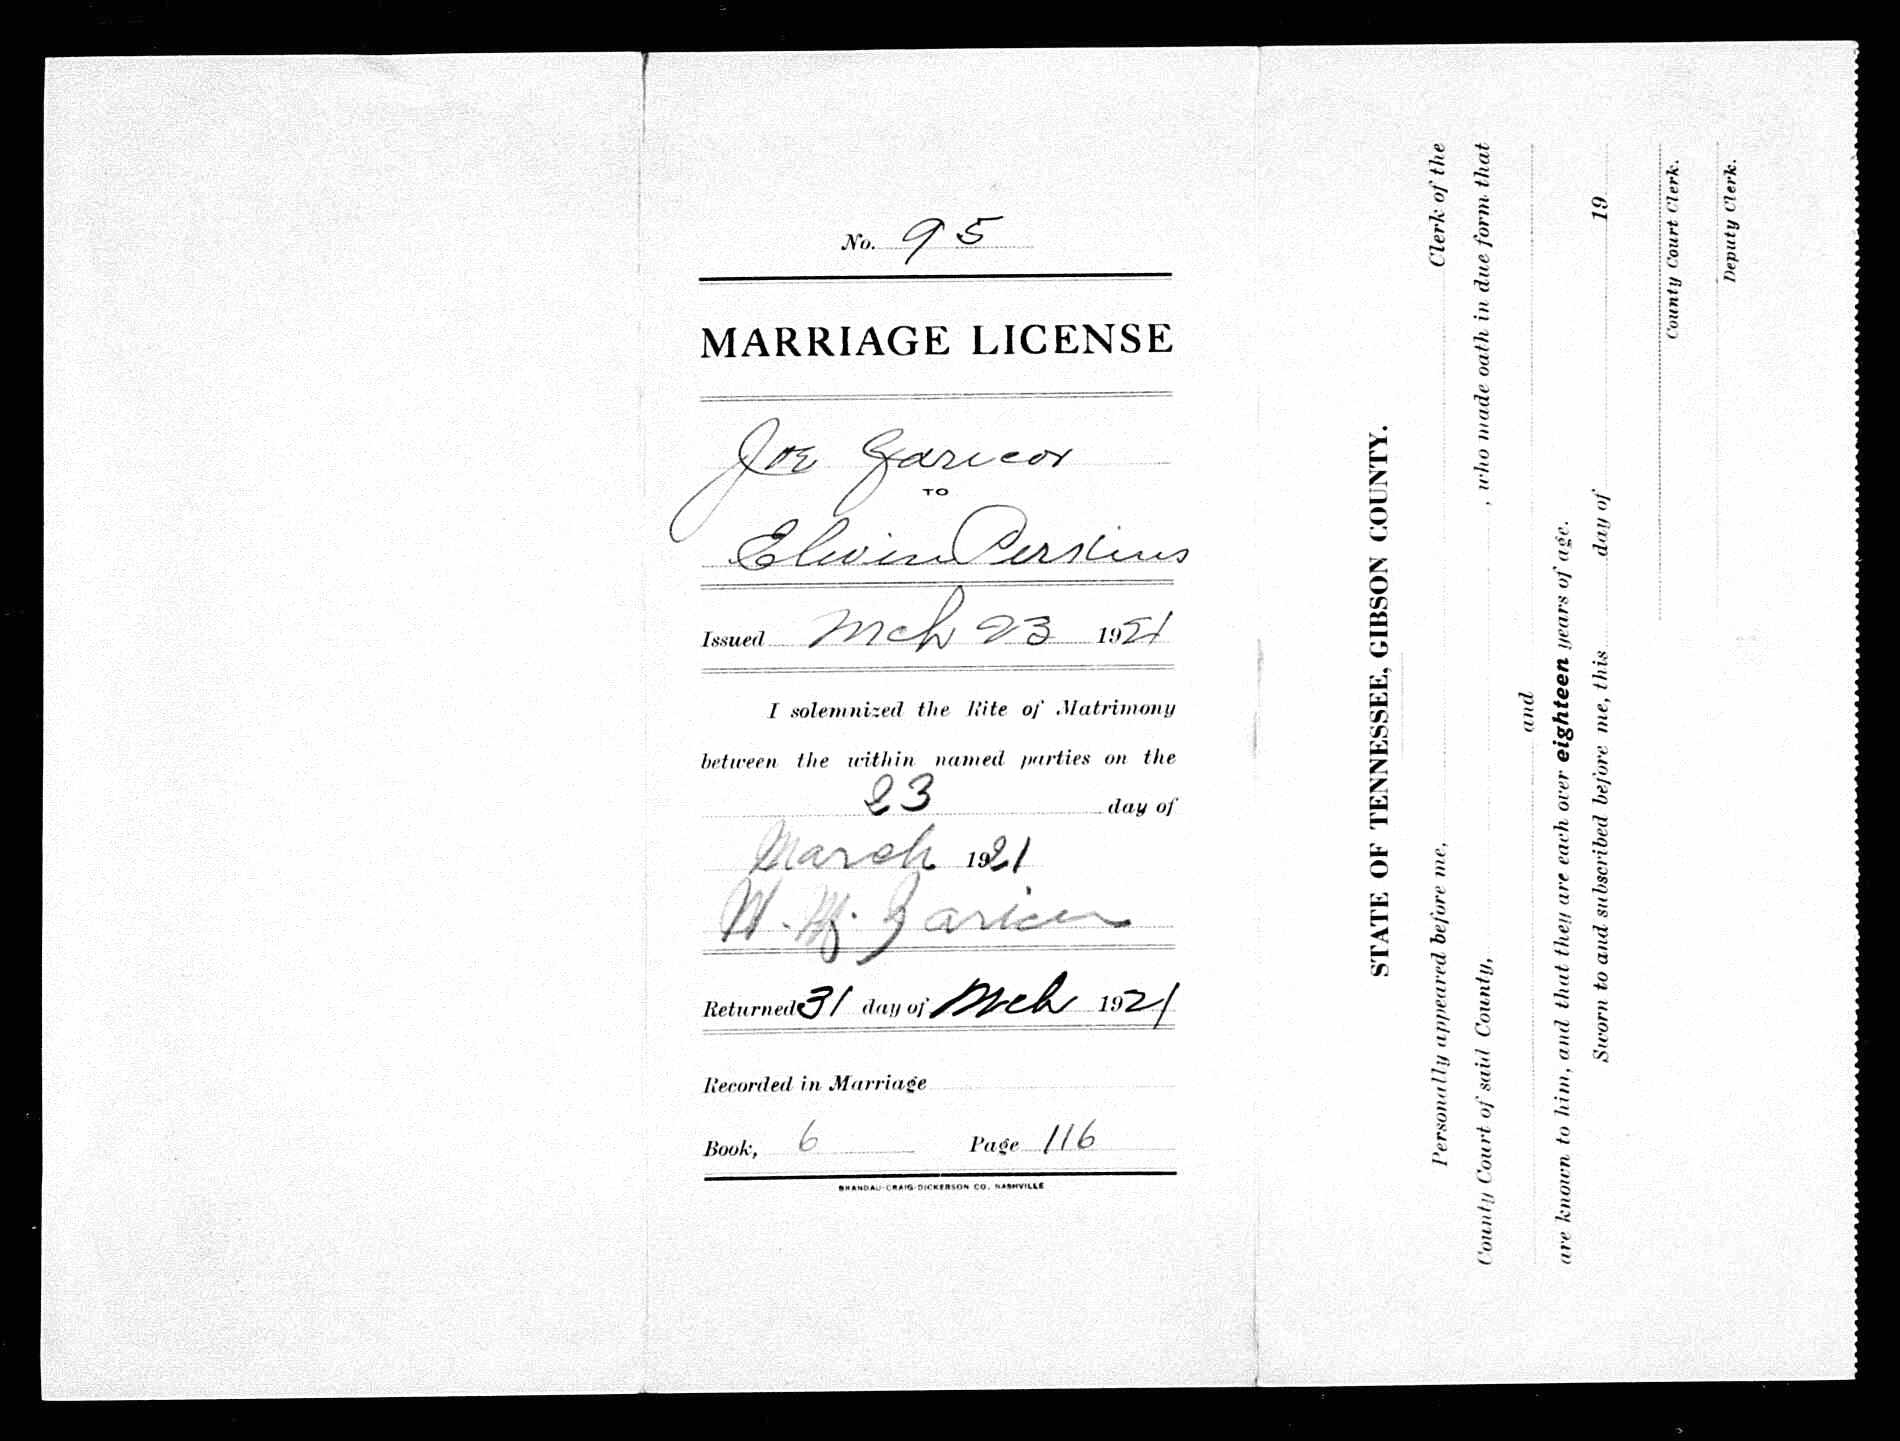 No. 95
MARRIAGE LICENSE
Joe
TO
Elwin Perkins
Issued Mch 23 1921
I solemnized the Rite of Matrimony
between the within named parties on the
23 day of
March 1921
Returned 31 day of Mch 1921
Recorded in Marriage
Book, 6 Page 116
BRANDAU-CRAIG-DICKERSON CO. NASHVILLE
STATE OF TENNESSEE, GIBSON COUNTY.
Personally appeared before me, Clerk of the
County Court of said County, , who made oath in due form that
and
are known to him, and that they are each over eighteen years of age.
Sworn to and subscribed before me, this day of 19
County Court Clerk.
Deputy Clerk.